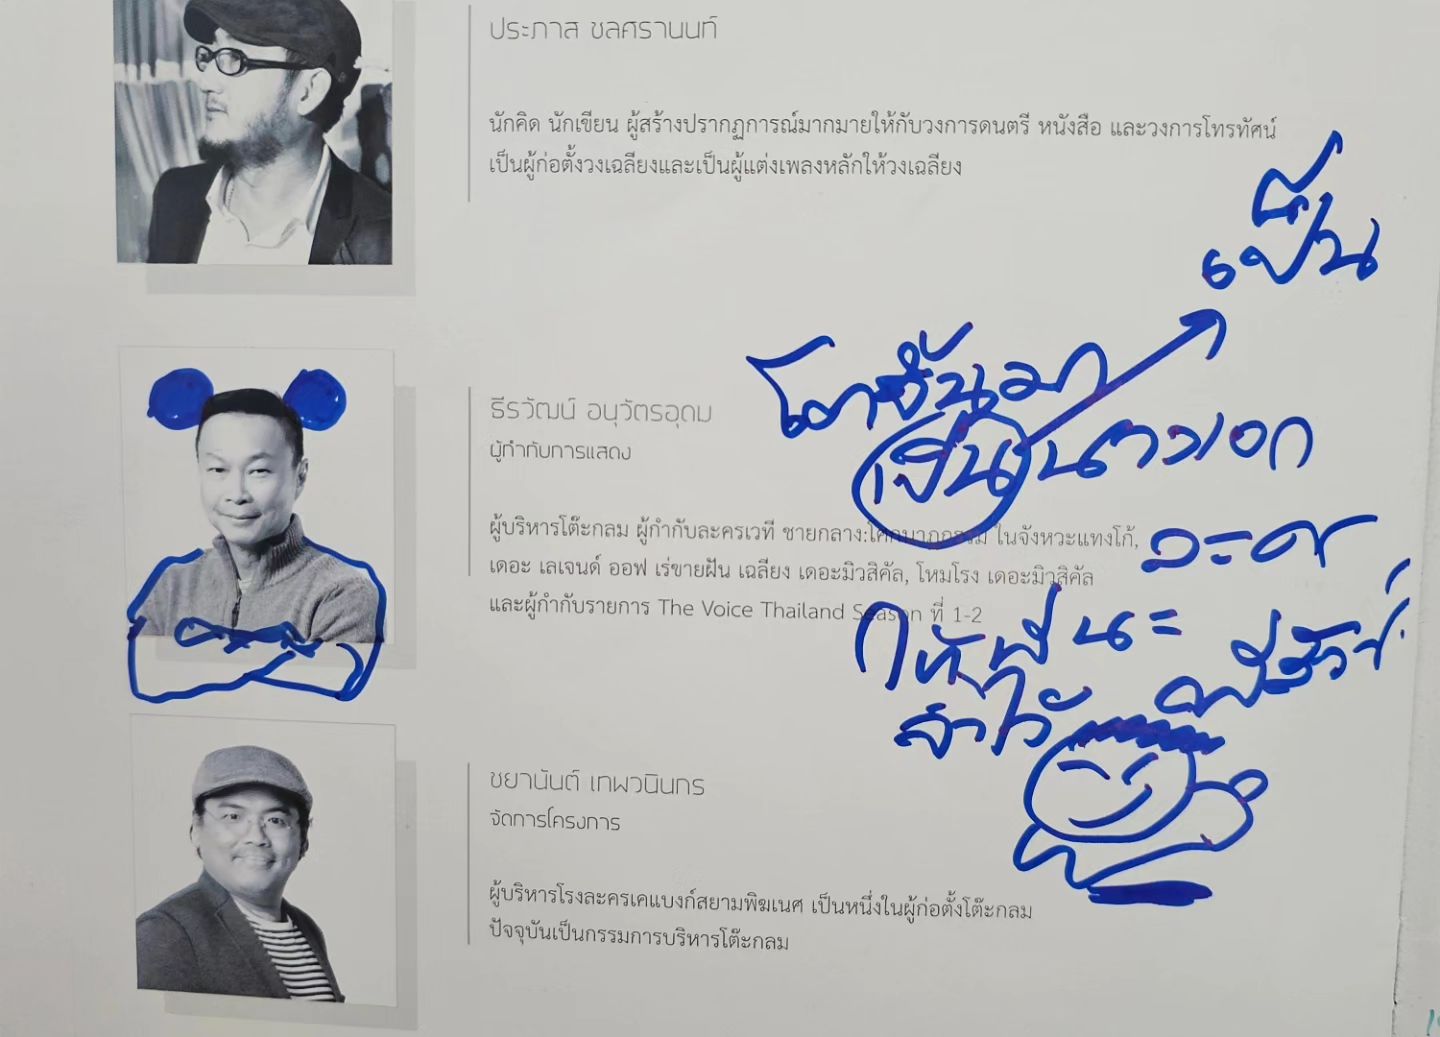 ประภาส ชลศรานนท์
นักคิด นักเขียน ผู้สร้างปรากฏการณ์มากมายให้กับวงการดนตรี หนังสือ และวงการโทรทัศน์
เป็นผู้ก่อตั้งวงเฉลียงและเป็นผู้แต่งเพลงหลักให้วงเฉลียง
ธีรวัฒน์ อนุวัตรอุดม
ผู้กำกับการแสดง
ผู้บริหารโต๊ะกลม ผู้กำกับละครเวที ชายกลาง:โศกนาฏกรรม ในจังหวะแทงโก้,
เดอะ เลเจนด์ ออฟ เร่ขายฝัน เฉลียง เดอะมิวสิคัล, โหมโรง เดอะมิวสิคัล
และผู้กำกับรายการ The Voice Thailand Season ที่ 1-2
เป็น
โตขึ้นมา
เป็น นางเอก
ละคร
ให้พี่นะ
ชยานันต์ เทพวนินกร
จัดการโครงการ
ผู้บริหารโรงละครเคแบงก์สยามพิฆเนศ เป็นหนึ่งในผู้ก่อตั้งโต๊ะกลม
ปัจจุบันเป็นกรรมการบริหารโต๊ะกลม